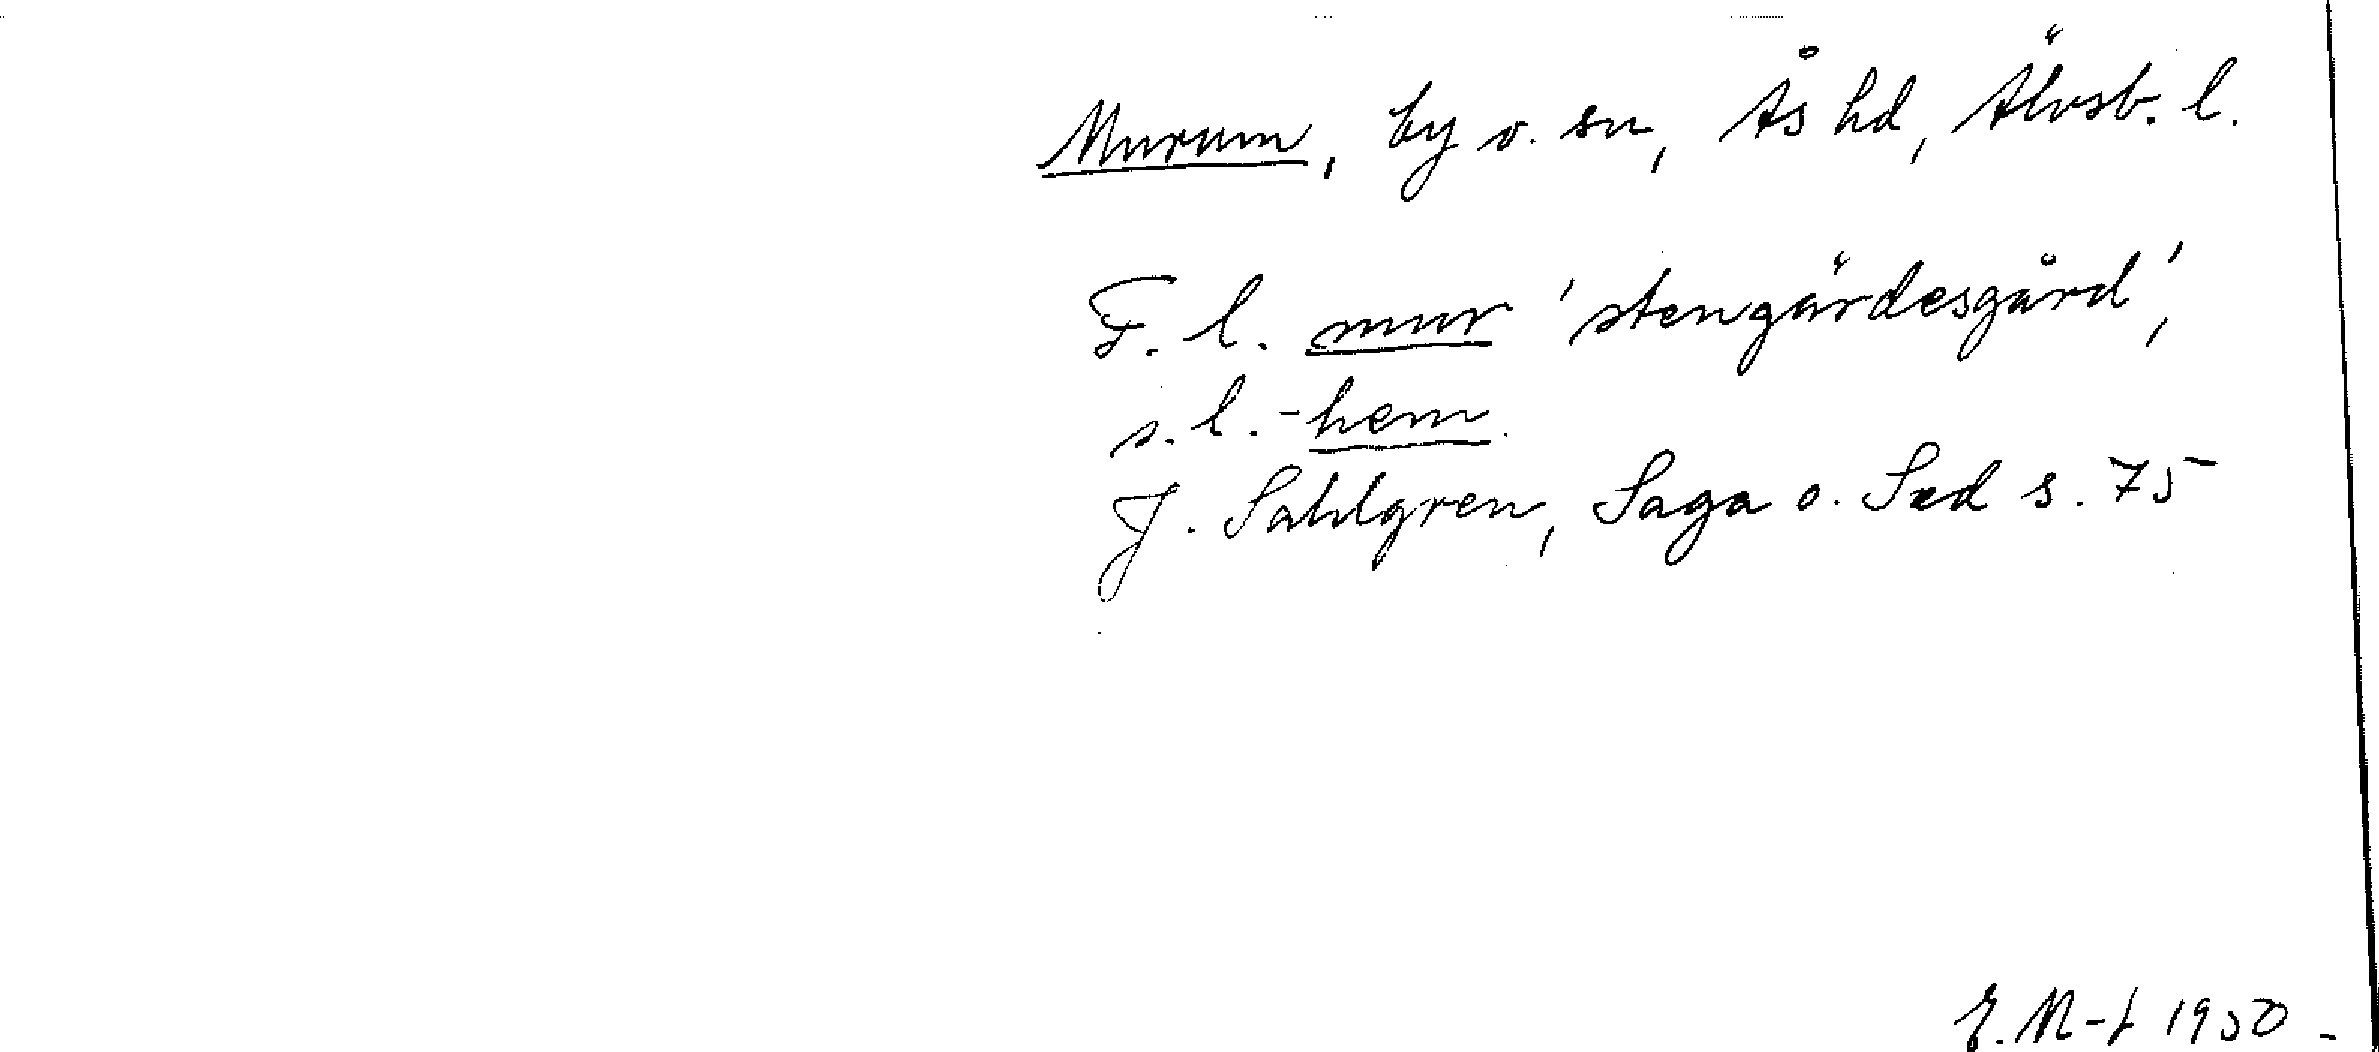 Murum, by o. sn, Ås hd, Älvsb. l.
F. l. mur 'stengärdesgård',
s. l. -hem.
J. Sahlgren, Saga o. Sed s. 75
1950